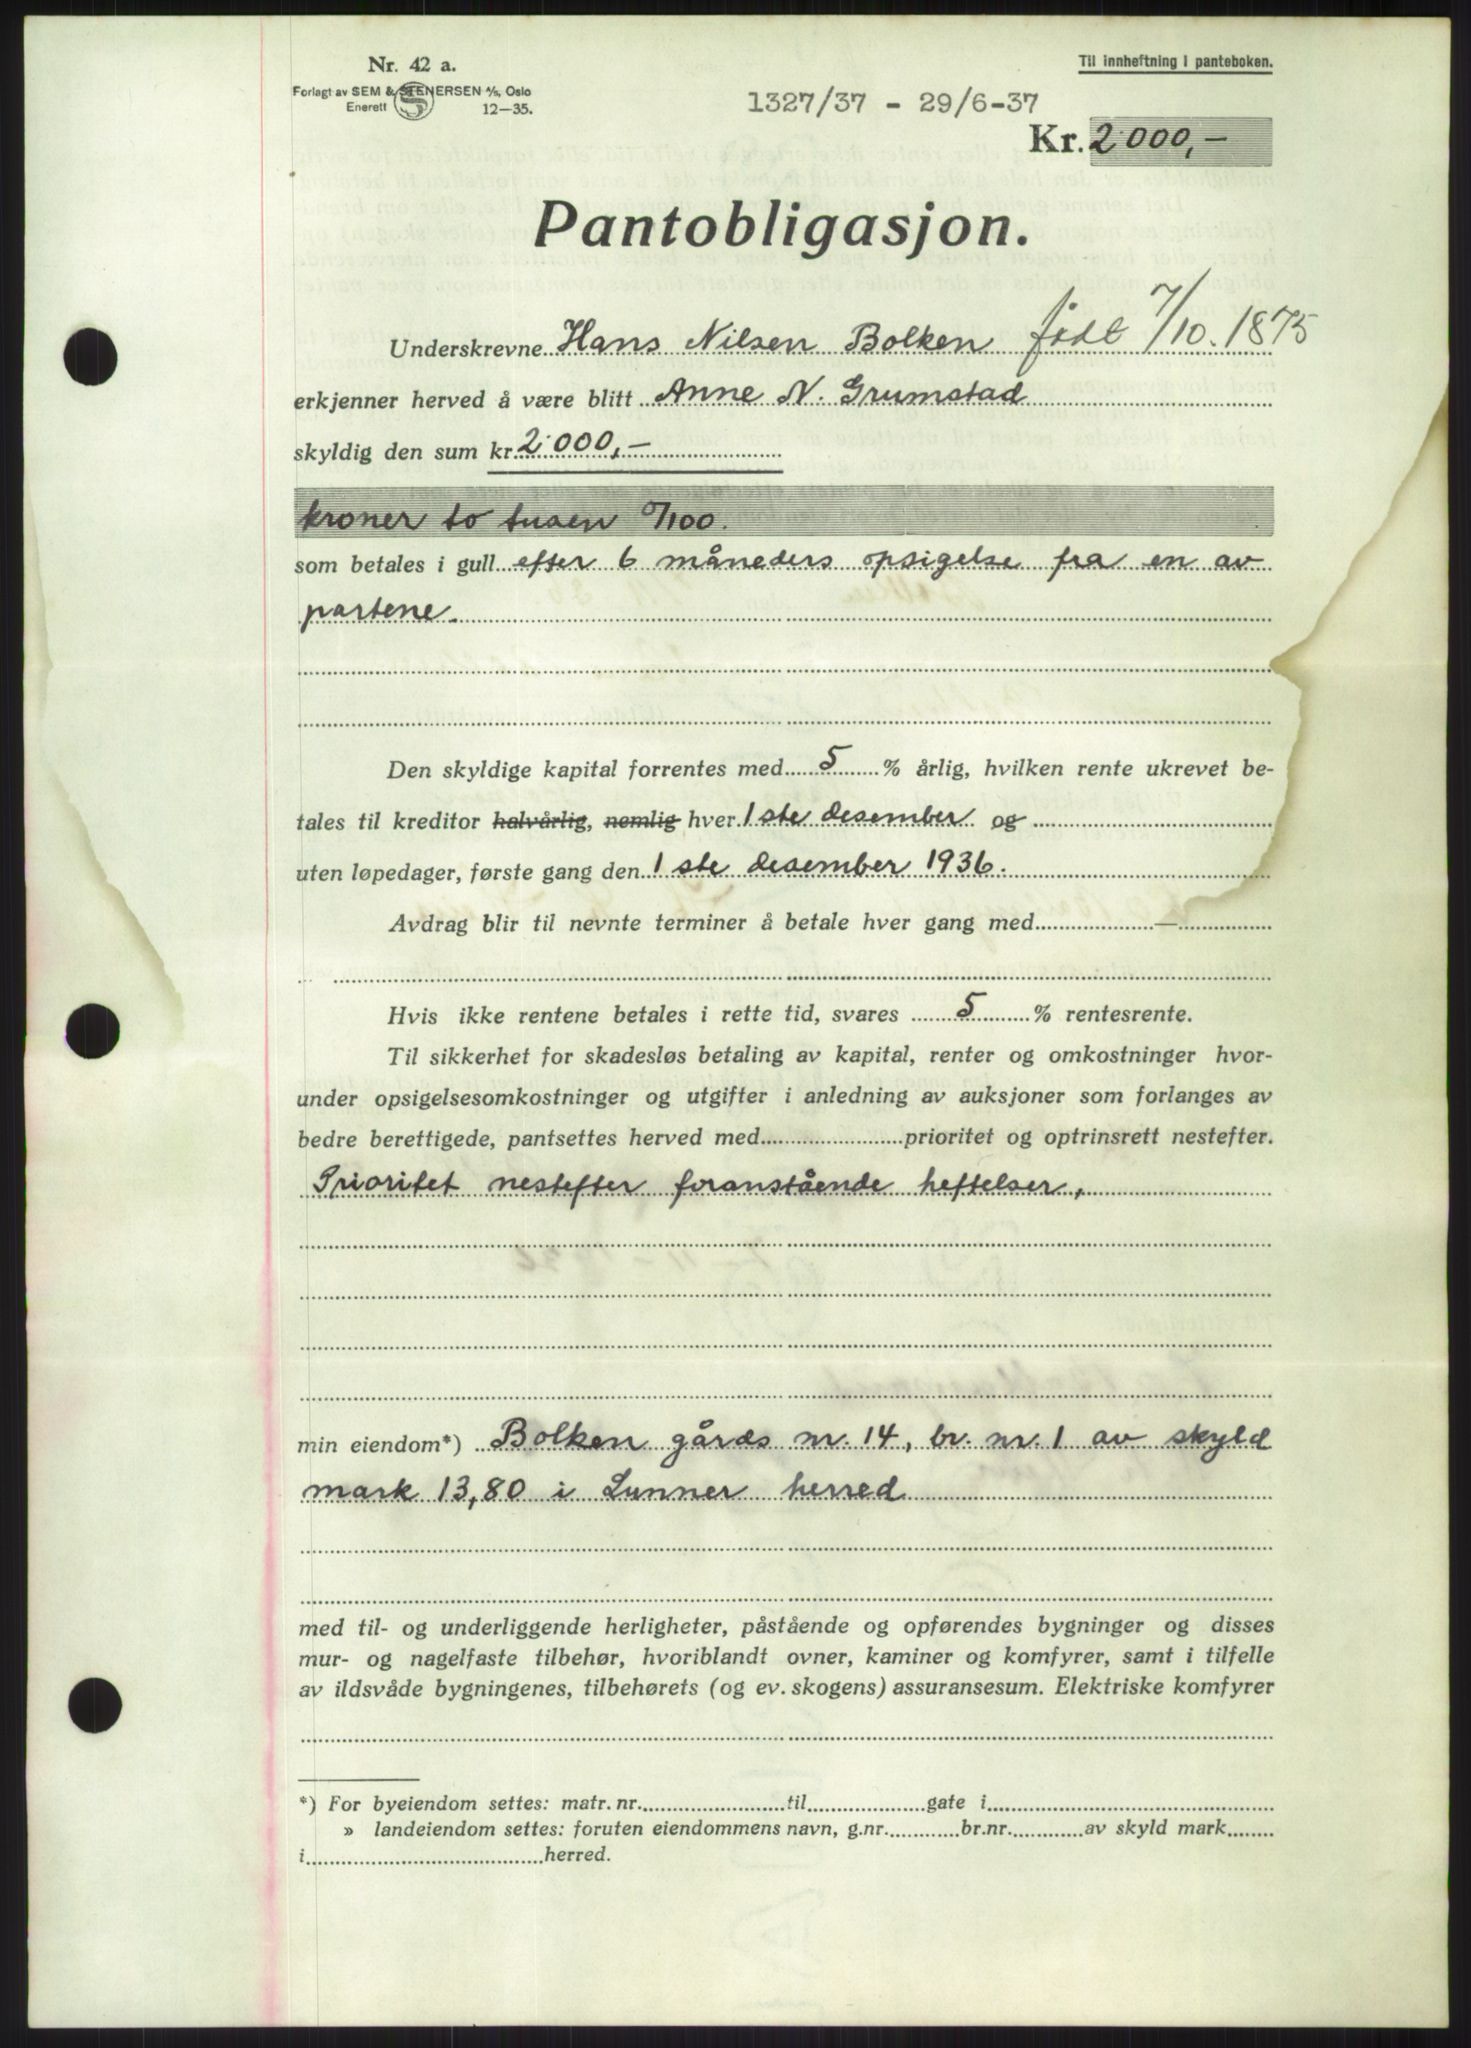 Nr. 42 a.
Til innheftning i panteboken.
Forlagt av SEM & STENERSEN A/S, Oslo
Enerett 12—35.
1327/37 - 29/6-37
Kr. 2 000,—
Pantobligasjon.
Underskrevne Hans Nilsen Bolken født 7/10. 1875
erkjenner herved å være blitt Anne N. Grumstad
skyldig den sum kr. 2 000,—
kroner to tusen 0/100.
som betales i gull efter 6 måneders opsigelse fra en av
partene.
Den skyldige kapital forrentes med 5 % årlig, hvilken rente ukrevet be-
tales til kreditor halvårlig, nemlig hver 1ste desember og
uten løpedager, første gang den 1ste desember 1936.
Avdrag blir til nevnte terminer å betale hver gang med —
Hvis ikke rentene betales i rette tid, svares 5 % rentesrente.
Til sikkerhet for skadesløs betaling av kapital, renter og omkostninger hvor-
under opsigelsesomkostninger og utgifter i anledning av auksjoner som forlanges av
bedre berettigede, pantsettes herved med prioritet og optrinsrett nestefter.
Prioritet nestefter foranstående heftelser,
min eiendom*) Bolken gårds nr. 14, br. nr. 1 av skyld
mark 13,80 i Lunner herred
med til- og underliggende herligheter, påstående og opførendes bygninger og disses
mur- og nagelfaste tilbehør, hvoriblandt ovner, kaminer og komfyrer, samt i tilfelle
av ildsvåde bygningenes, tilbehørets (og ev. skogens) assuransesum. Elektriske komfyrer
*) For byeiendom settes: matr. nr. til gate i
» landeiendom settes: foruten eiendommens navn, g.nr. br.nr. av skyld mark
i herred.